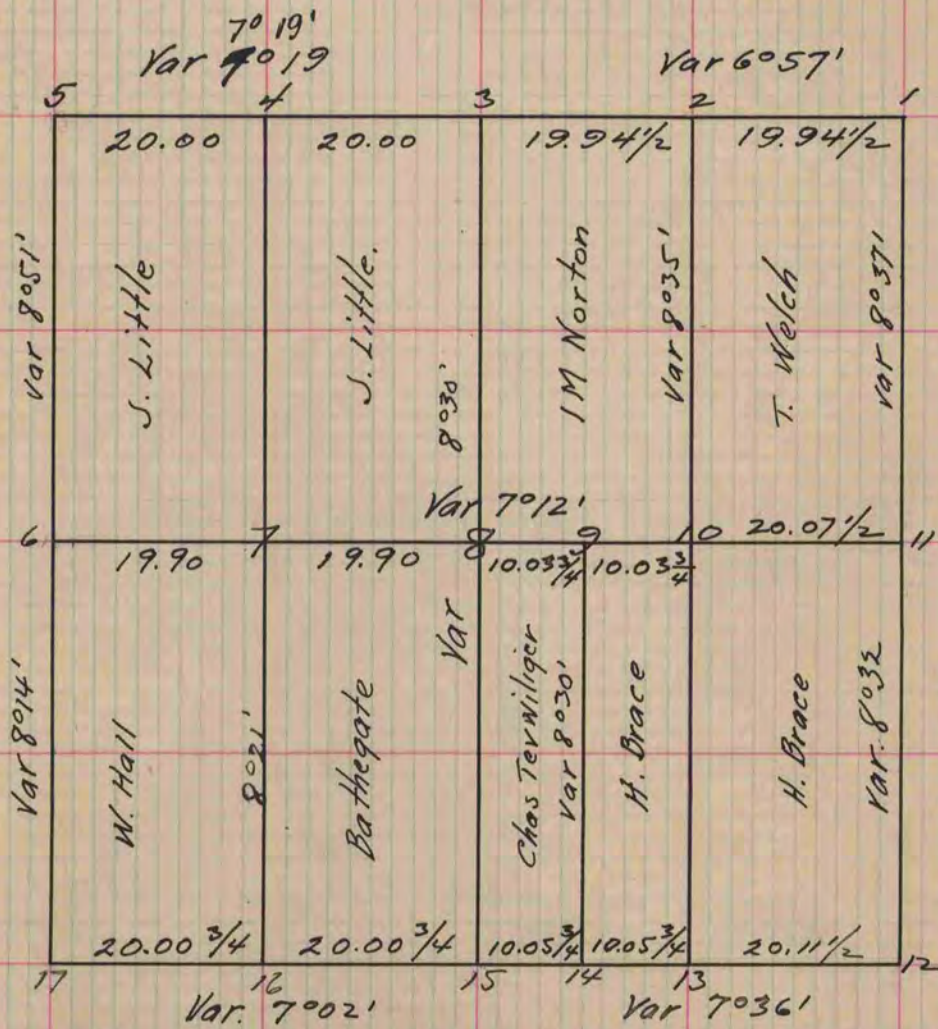 7° 19'
Var 7° 19
Var 6° 57'
5
4
3
2
1
20.00
20.00
19.94 1/2
19.94 1/2
Var 8° 51'
S. Little
S. Little.
8° 30'
I M Norton
Var 8° 35'
T. Welch
Var 8° 37'
Var 7° 12'
6
7
8
9
10
11
19.90
19.90
10.03 3/4
10.03 3/4
20.07 1/2
Var 8° 14'
W. Hall
8° 21'
Bathegate
Var
Chas Terwiliger
Var 8° 30'
H. Brace
H. Brace
Var. 8° 32
20.00 3/4
20.00 3/4
10.05 3/4
10.05 3/4
20.11 1/2
17
16
15
14
13
12
Var. 7° 02'
Var 7° 36'